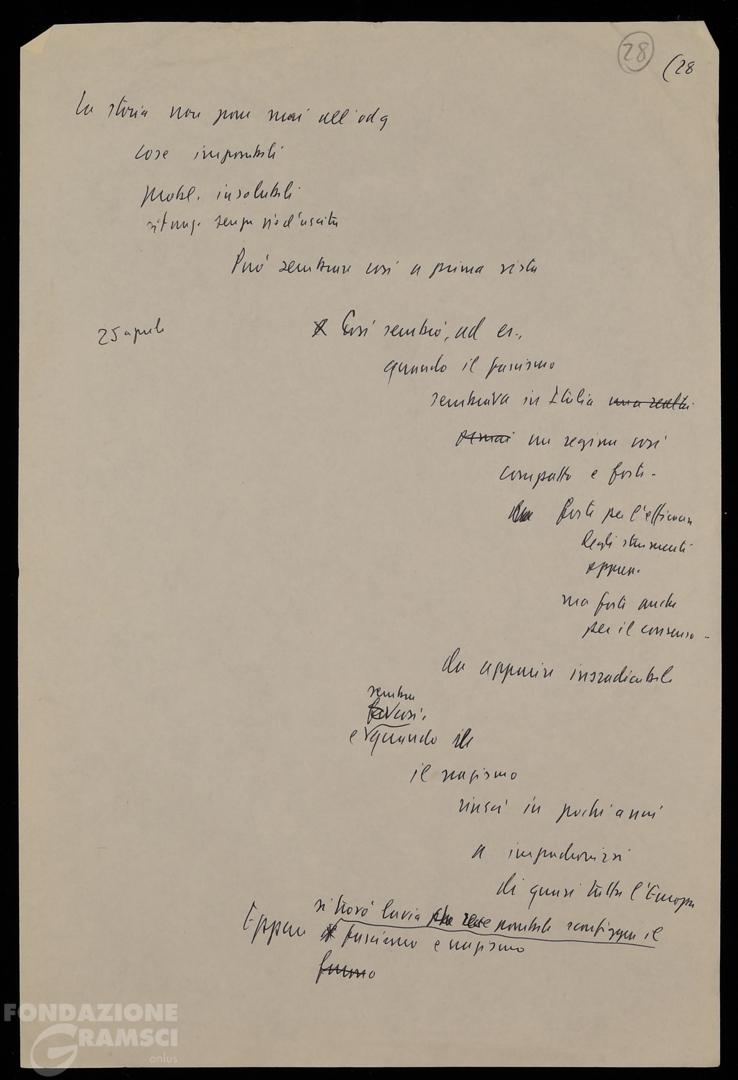 28 (28
La storia non pone mai all'odg
cose impossibili
probl. insolubili
situaz. senza via d'uscita
Può sembrare così a prima vista
25 aprile
Così sembrò, ad es.,
quando il fascismo
sembrava in Italia una realtà
ormai un regime così
compatto e forte -
forte per l'efficacia
degli strumenti
oppress.
ma forte anche
per il consenso -
da apparire insradicabile
sembrò
così,
e quando
il nazismo
riuscì in pochi anni
a impadronirsi
di quasi tutta l'Europa
si trovò la via possibile sconfiggere il
Eppure fascismo e nazismo
furono
FONDAZIONE
GRAMSCI
onlus